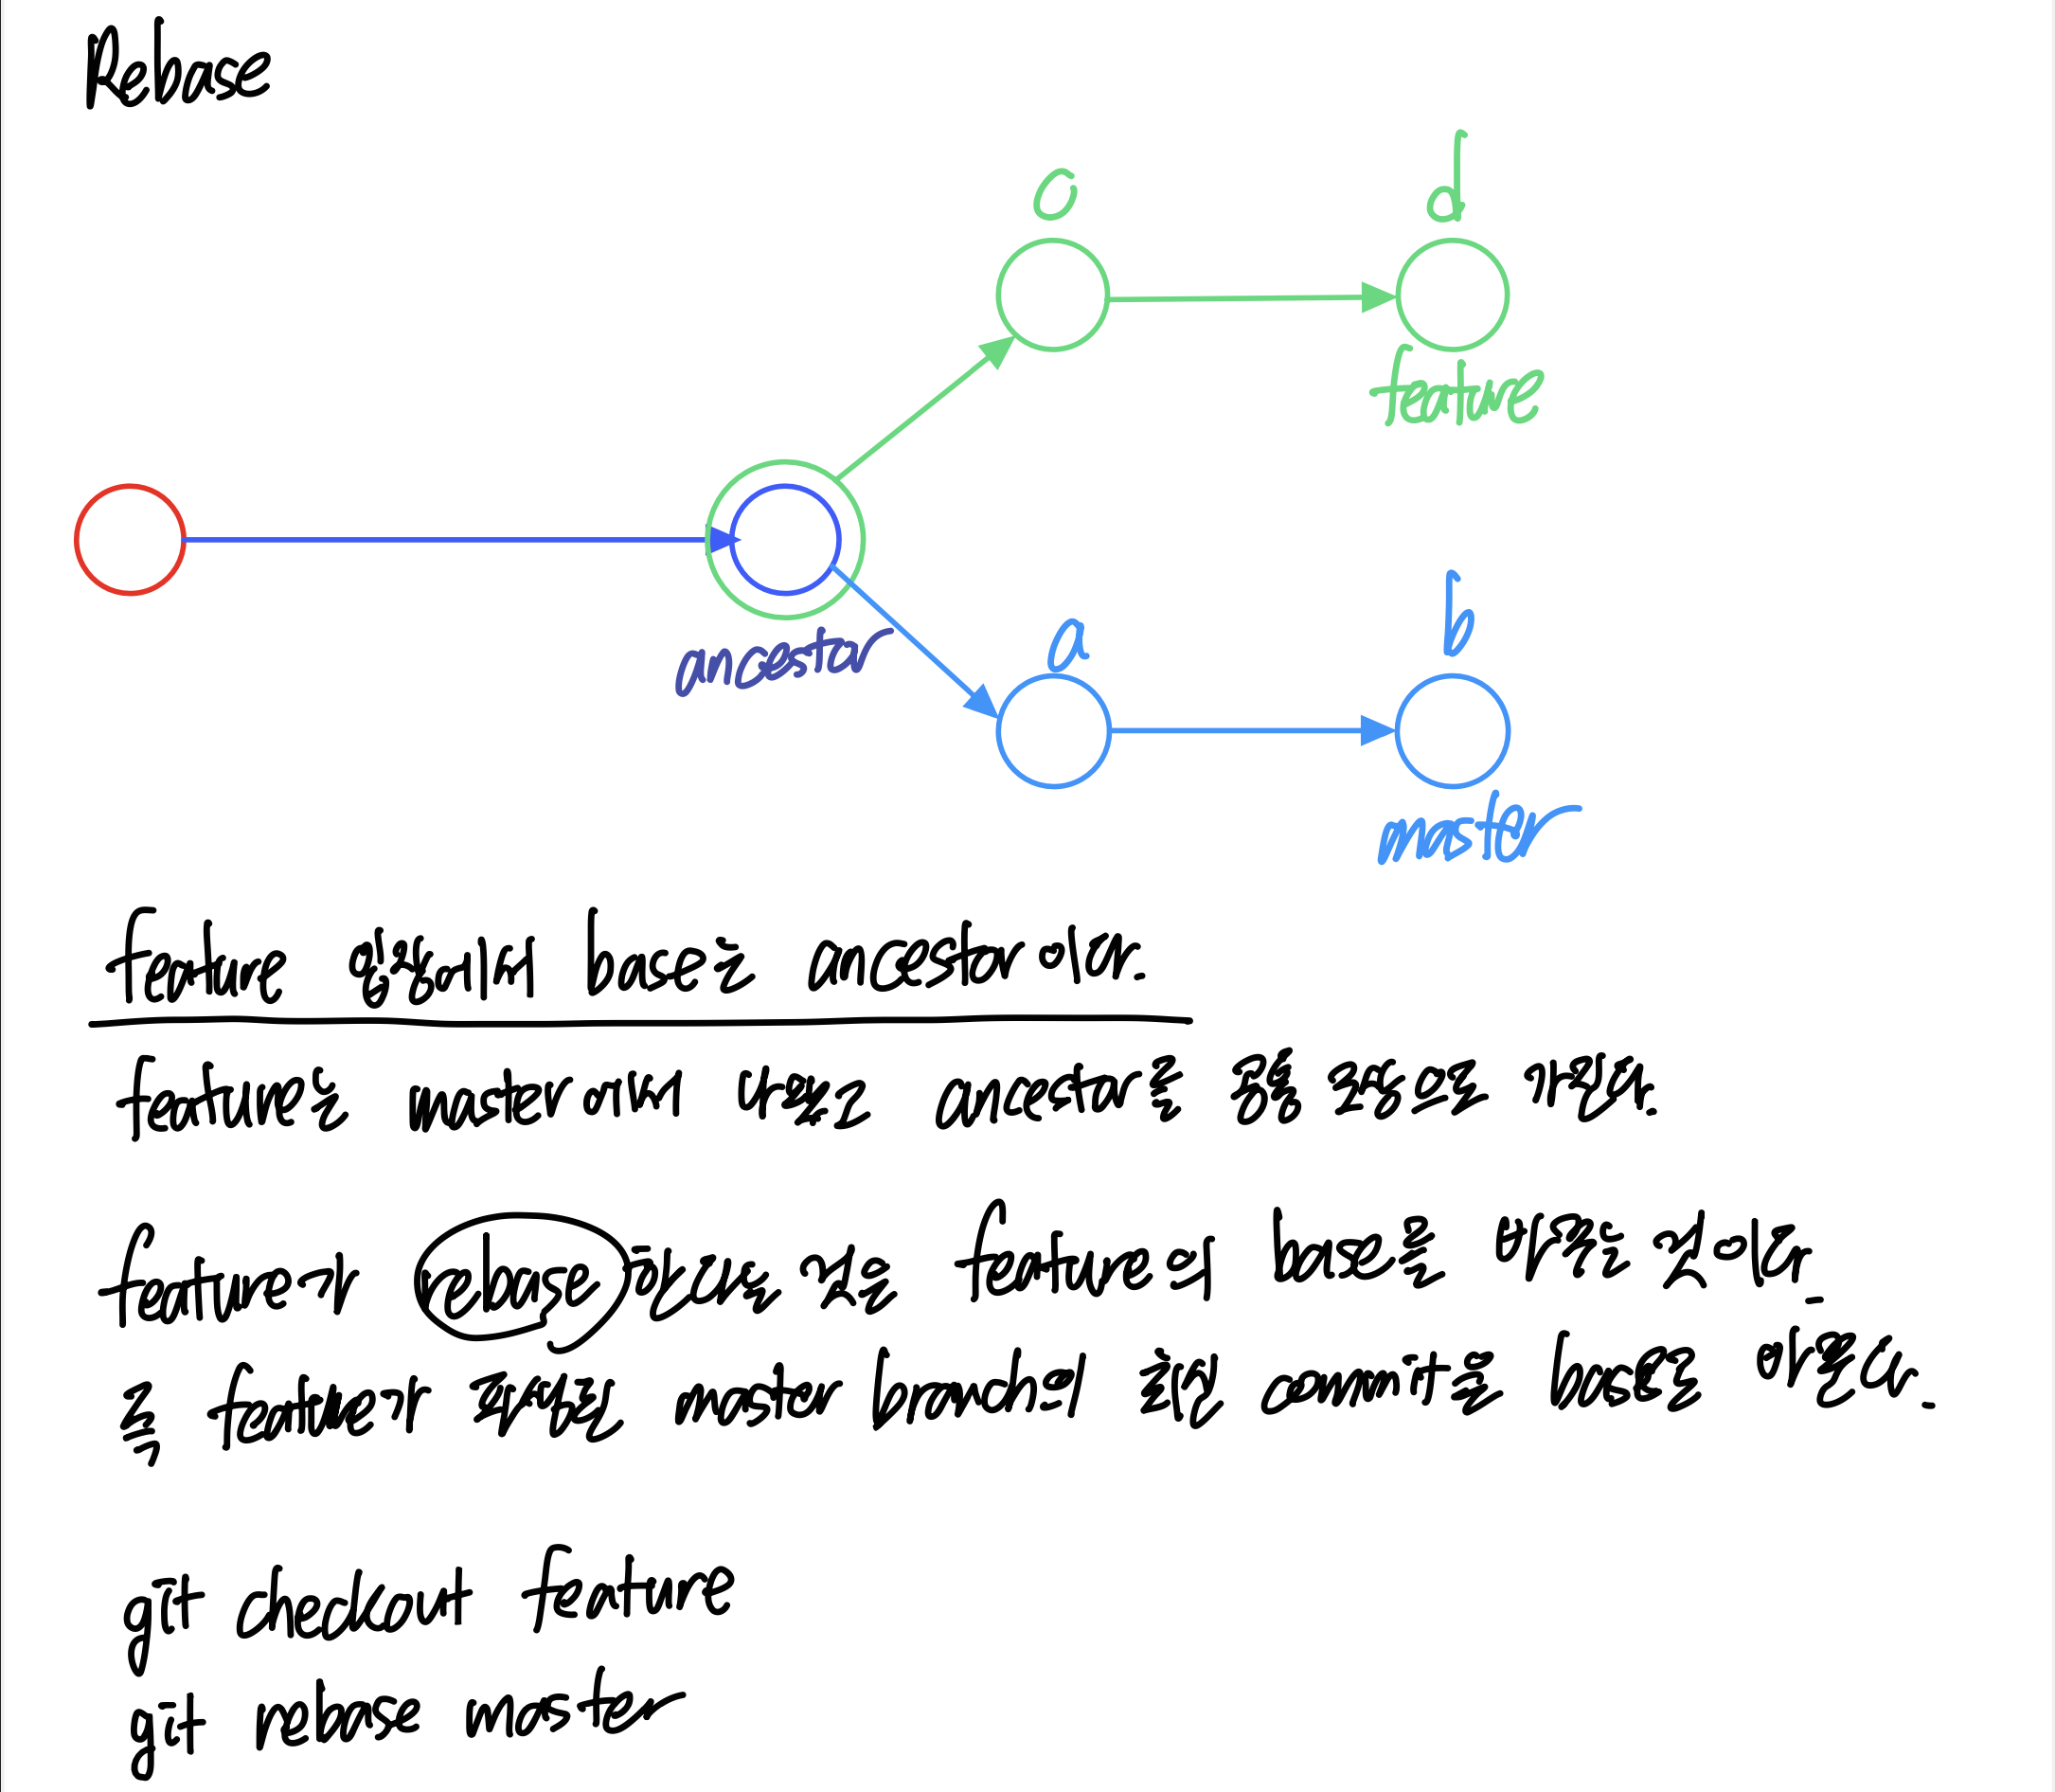 Rebase
c
d
feature
ancestor
a
b
master
feature 입장에서 base는 ancestor이다.
feature는 master에서 ancestor를 공통 조상으로 가진다.
feature가 rebase 한다는 것은 feature의 base를 바꾼다는 것이다.
즉, feature가 master branch의 최신 commit을 base로
git checkout feature
git rebase master